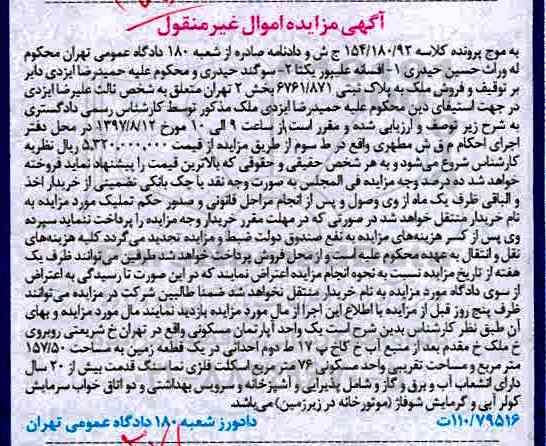 آگهی مزایده اموال غیر منقول
به موج پرونده کلاسه ۱۵۴/۱۸۰/۹۲ ج ش و دادنامه صادره از شعبه ۱۸۰ دادگاه عمومی تهران محکوم
له وراث حسین حیدری ۱- افسانه علیپور یکتا ۲- سوگند حیدری و محکوم علیه حمیدرضا ایزدی دایر
بر توقیف و فروش ملک به پلاک ثبتی ۶۷۶۱/۸۷۱ بخش ۲ تهران متعلق به شخص ثالث علیرضا ایزدی
در جهت استیفای دین محکوم علیه حمیدرضا ایزدی ملک مذکور توسط کارشناس رسمی دادگستری
به شرح زیر توصیف و ارزیابی شده و مقرر است از ساعت ۹ الی ۱۰ مورخ ۱۳۹۷/۸/۱۲ در محل دفتر
اجرای احکام م ق ش مطهری واقع در ط سوم از طریق مزایده از قیمت ۵,۳۲۰,۰۰۰,۰۰۰ ریال نظریه
کارشناس شروع می‌شود و به هر شخص حقیقی و حقوقی که بالاترین قیمت را پیشنهاد نماید فروخته
خواهد شد ده درصد وجه مزایده فی المجلس به صورت وجه نقد یا چک بانکی تضمینی از خریدار اخذ
و الباقی ظرف یک ماه از وی وصول و پس از انجام مراحل قانونی و صدور حکم تملیک مورد مزایده به
نام خریدار منتقل خواهد شد در صورتی که در مهلت مقرر خریدار وجه مزایده را پرداخت ننماید سپرده
وی پس از کسر هزینه‌های مزایده به نفع صندوق دولت ضبط و مزایده تجدید می‌گردد کلیه هزینه‌های
نقل و انتقال به عهده محکوم علیه است و از محل فروش پرداخت خواهد شد طرفین می‌توانند ظرف یک
هفته از تاریخ مزایده نسبت به نحوه انجام مزایده اعتراض نمایند که در این صورت تا رسیدگی به اعتراض
از سوی دادگاه مورد مزایده به نام خریدار منتقل نخواهد شد ضمنا طالبین شرکت در مزایده می‌توانند
ظرف پنج روز قبل از مزایده با اطلاع این اجرا از مال مورد مزایده بازدید نمایند مال مورد مزایده و بهای
آن طبق نظر کارشناس بدین شرح است یک واحد آپارتمان مسکونی واقع در تهران خ شریعتی روبروی
خ ملک خ مقدم بعد از منبع آب خ کاخ پ ۱۷ ط دوم احداثی در یک قطعه زمین به مساحت ۱۵۷/۵۰
متر مربع و مساحت تقریبی واحد مسکونی ۷۶ متر مربع اسکلت فلزی نما سنگ قدمت بیش از ۲۰ سال
دارای انشعاب آب و برق و گاز و شامل پذیرایی و آشپزخانه و سرویس بهداشتی و دو اتاق خواب سرمایش
کولر آبی و گرمایش شوفاژ (موتورخانه در زیرزمین) می‌باشد.
۱۱۰/۷۹۵۱۶ت دادورز شعبه ۱۸۰ دادگاه عمومی تهران